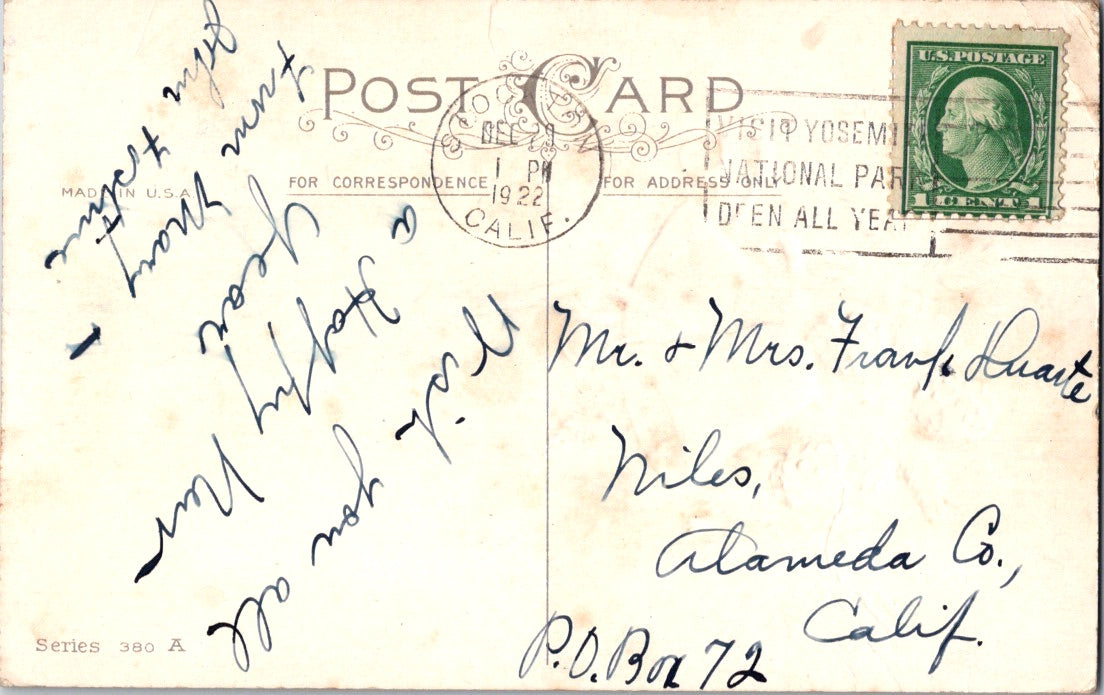 POST CARD
U.S. POSTAGE
1 CENT 1
STOCKTON
DEC 29
1 PM
1922
CALIF.
VISIT YOSEMI
NATIONAL PARK
OPEN ALL YEAR
MADE IN U.S.A.
FOR CORRESPONDENCE
FOR ADDRESS ONLY
Wish you all
a Happy New
Year
from Mary
John
Mr. & Mrs. Frank Duarte
Niles,
Alameda Co.,
Calif.
P.O. Box 72
Series 380 A